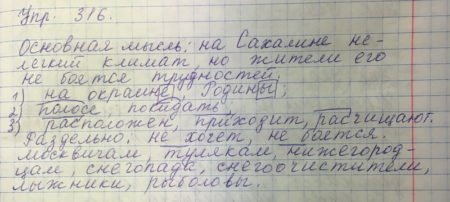 Упр. 316.
Основная мысль: на Сахалине не-
легкий климат, но жители его
не боятся трудностей.
1) на окраине, Родины;
2) полосе, покидать
3) расположен, приходит, расчищают.
Раздельно: не хочет, не боятся.
москвичам, тулякам, нижегород-
цам, снегопада, снегоочистители,
лыжники, рыболовы.